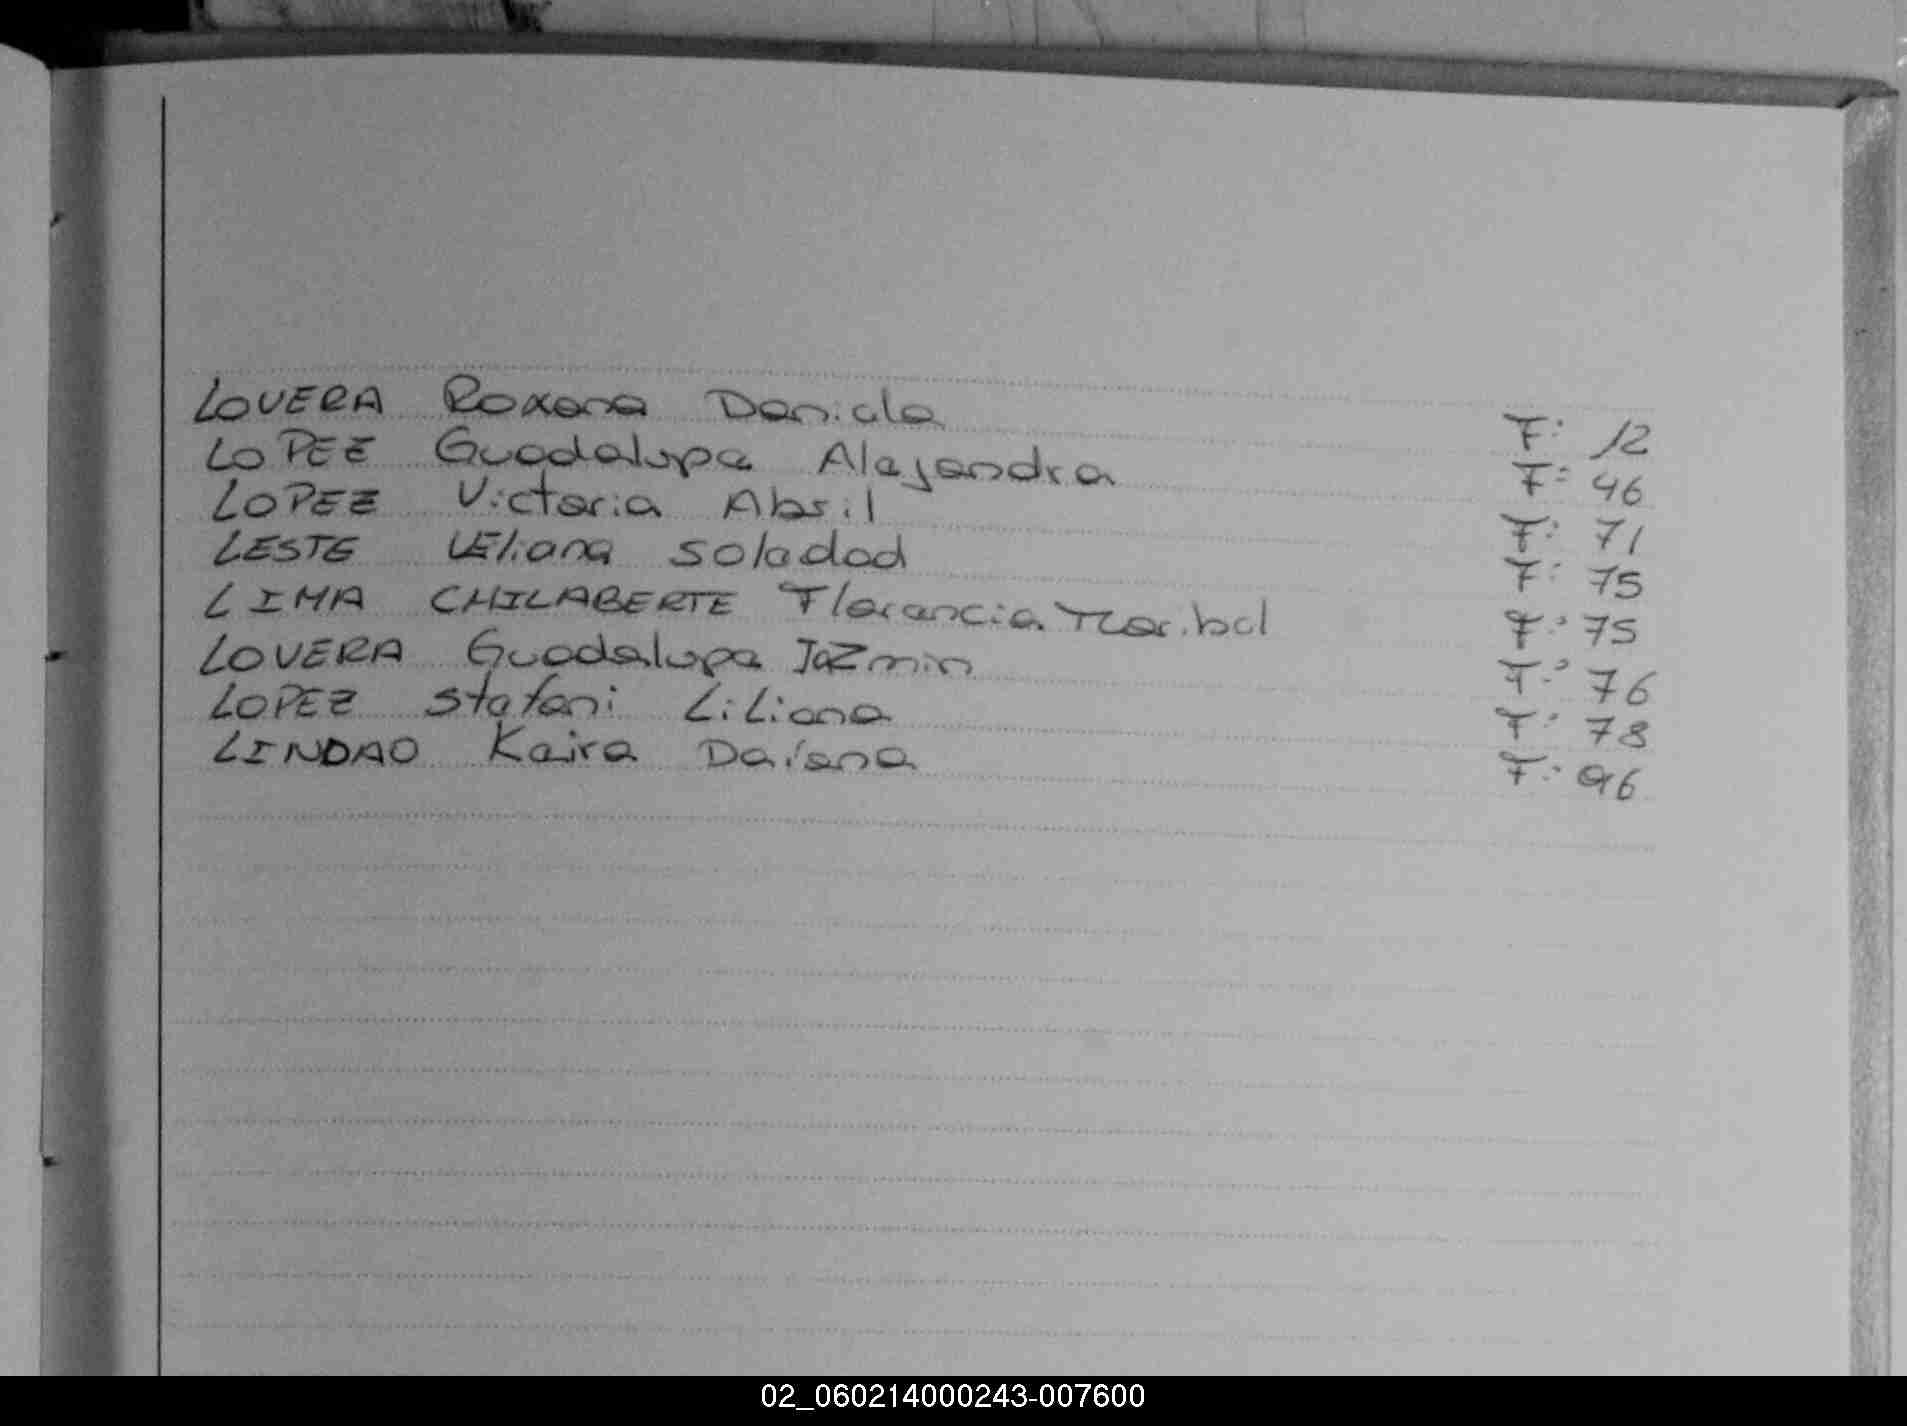 LOVERA Roxana Daniela F: 12
LOPEZ Guadalupe Alejandra F: 46
LOPEZ Victoria Abril F: 71
LESTE Eliana Soledad F: 75
LIMA CHILABERTE Florencia Maribel F: 75
LOVERA Guadalupe Jazmin F: 76
LOPEZ Stefani Liliana F: 78
LINDAO Kaira Daiana F: 96
02_060214000243-007600